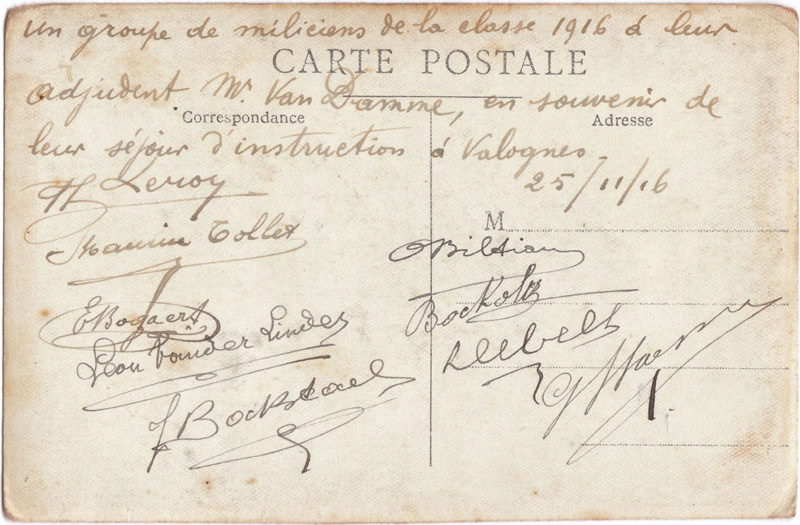 un groupe de miliciens de la classe 1916 à leur
CARTE POSTALE
adjudent Mr. Van Damme, en souvenir de
Correspondance
Adresse
leur séjour d'instruction à Valognes
25/11/16
H Leroy
M
Maurice Collet
E Bogaert
Bockoltz
Léon Vander Linden
J Bockstael